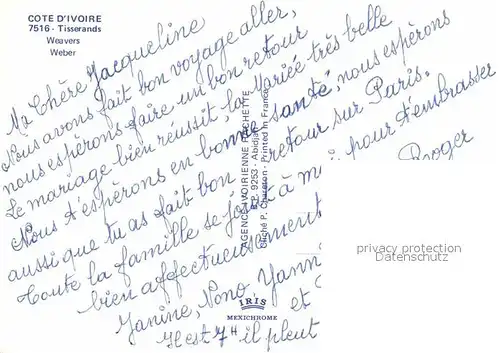 COTE D'IVOIRE
7516 - Tisserands
Weavers
Weber
Ma Chère Jacqueline
Nous avons fait bon voyage aller,
nous espérons faire un bon retour
Le mariage bien réussit, la Mariée très belle
Nous t'espérons en bonne santé, nous espérons
aussi que tu as fait bon retour sur Paris.
Toute la famille se joint à moi pour t'embrasser
bien affectueusement
Roger
Janine, Nono, Yann
et
Il est 7H il pleut
AGENCE IVOIRIENNE HACHETTE
B.P. 9253 - Abidjan
Cliché P. Chareton - Printed in France
IRIS
MEXICHROME
privacy protection
Datenschutz